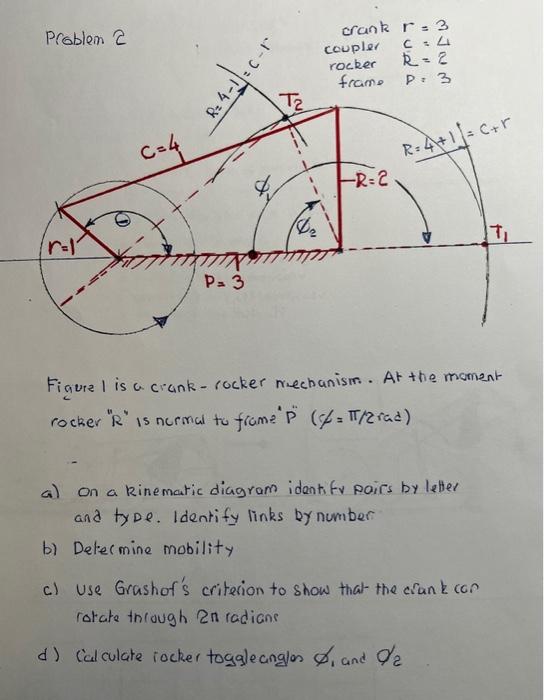 Problem 2
crank r = 3
coupler c = 4
rocker R = 2
frame P = 3
R = 4-1 = c-r
T2
C=4
R = 4+1 = c+r
R=2
Ø1
Ø2
θ
r=1
T1
P=3
Figure 1 is a crank-rocker mechanism. At the moment
rocker "R" is normal to frame "P" (Ø = π/2 rad)
a) on a kinematic diagram identify pairs by letter
and type. Identify links by number
b) Determine mobility
c) use Grashof's criterion to show that the crank can
rotate through 2π radians
d) Calculate rocker toggle angles Ø1 and Ø2